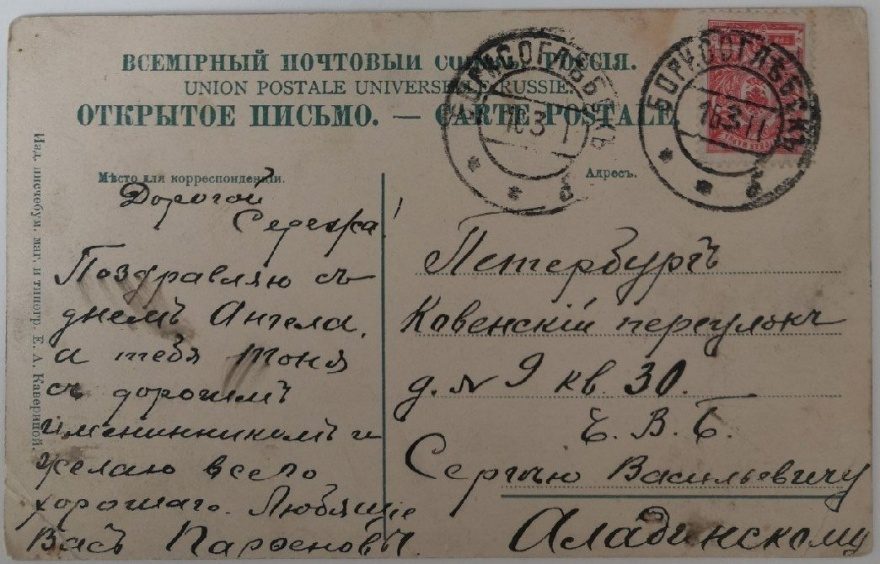 ВСЕМІРНЫЙ ПОЧТОВЫЙ СОЮЗЪ. РОССІЯ.
UNION POSTALE UNIVERSELLE. RUSSIE.
ОТКРЫТОЕ ПИСЬМО. — CARTE POSTALE
БОРИСОГЛѢБСКЪ
16 3 11
БОРИСОГЛѢБСКЪ
16 3 11
б
б
Мѣсто для корреспонденціи.
Адресъ.
Дорогой
Сережа!
Поздравляю съ
днемъ Ангела,
а тебя Тоня
съ дорогимъ
именинникомъ и
желаю всего
хорошаго. Любящіе
Васъ Парѳеновы.
Петербургъ
Ковенскій переулокъ
д. № 9 кв. 30.
Е. В. Б.
Сергѣю Васильевичу
Аладинскому
Изд. писчебум. маг. и типогр. Е. А. Кавериной.